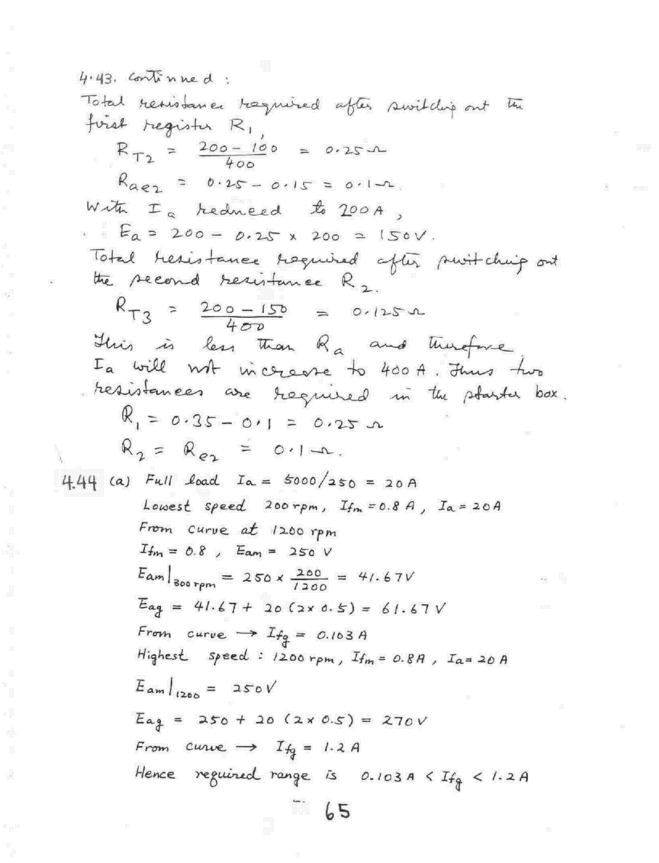 4.43. Continued :
Total resistance required after switching out the
first register R1,
RT2 = 200 - 100 / 400 = 0.25 Ω
Rae2 = 0.25 - 0.15 = 0.1 Ω.
With Ia reduced to 200A,
Ea = 200 - 0.25 x 200 = 150V.
Total resistance required after switching out
the second resistance R2.
RT3 = 200 - 150 / 400 = 0.125 Ω
This is less than Ra and therefore
Ia will not increase to 400 A. Thus two
resistances are required in the starter box.
R1 = 0.35 - 0.1 = 0.25 Ω
R2 = Re2 = 0.1 Ω.
4.44 (a) Full load Ia = 5000/250 = 20 A
Lowest speed 200 rpm, Ifm = 0.8 A, Ia = 20A
From curve at 1200 rpm
Ifm = 0.8, Eam = 250 V
Eam|300 rpm = 250 x 200 / 1200 = 41.67V
Eag = 41.67 + 20 (2x 0.5) = 61.67 V
From curve → Ifg = 0.103 A
Highest speed : 1200 rpm, Ifm = 0.8A, Ia = 20 A
Eam|1200 = 250V
Eag = 250 + 20 (2x0.5) = 270V
From curve → Ifg = 1.2 A
Hence required range is 0.103 A < Ifg < 1.2A
65